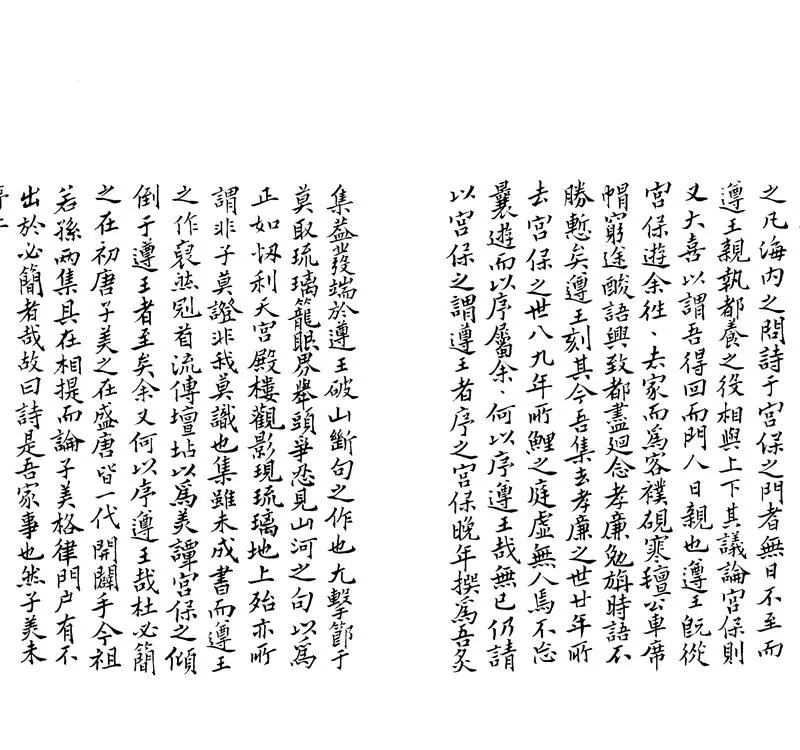 之凡海内之問詩于宫保之門者無日不至而
遵王親執都養之役相與上下其議論宫保則
又大喜以謂吾得回而門人日親也遵王既從
宫保遊余徃、去家而爲客襆硯寒氊公車席
帽窮途酸語興致都盡廻念孝廉勉旃時語不
勝慙矣遵王刻其今吾集去孝廉之世廿年所
去宫保之世八九年所鯉之庭虛無人焉不忘
曩遊而以序屬余、何以序遵王哉無已仍請
以宫保之謂遵王者序之宫保晚年撰爲吾炙
集葢發端於遵王破山斷句之作也尢擊節于
莫取琉璃籠眼界舉頭爭忍見山河之句以爲
正如忉利天宫殿樓觀影現琉璃地上殆亦所
謂非子莫證非我莫識也集雖未成書而遵王
之作裒然冠首流傳壇坫以爲美譚宫保之傾
倒于遵王者至矣余又何以序遵王哉杜必簡
之在初唐子美之在盛唐皆一代開闢手今祖
若孫兩集具在相提而論子美格律門户有不
出於必簡者哉故曰詩是吾家事也然子美未